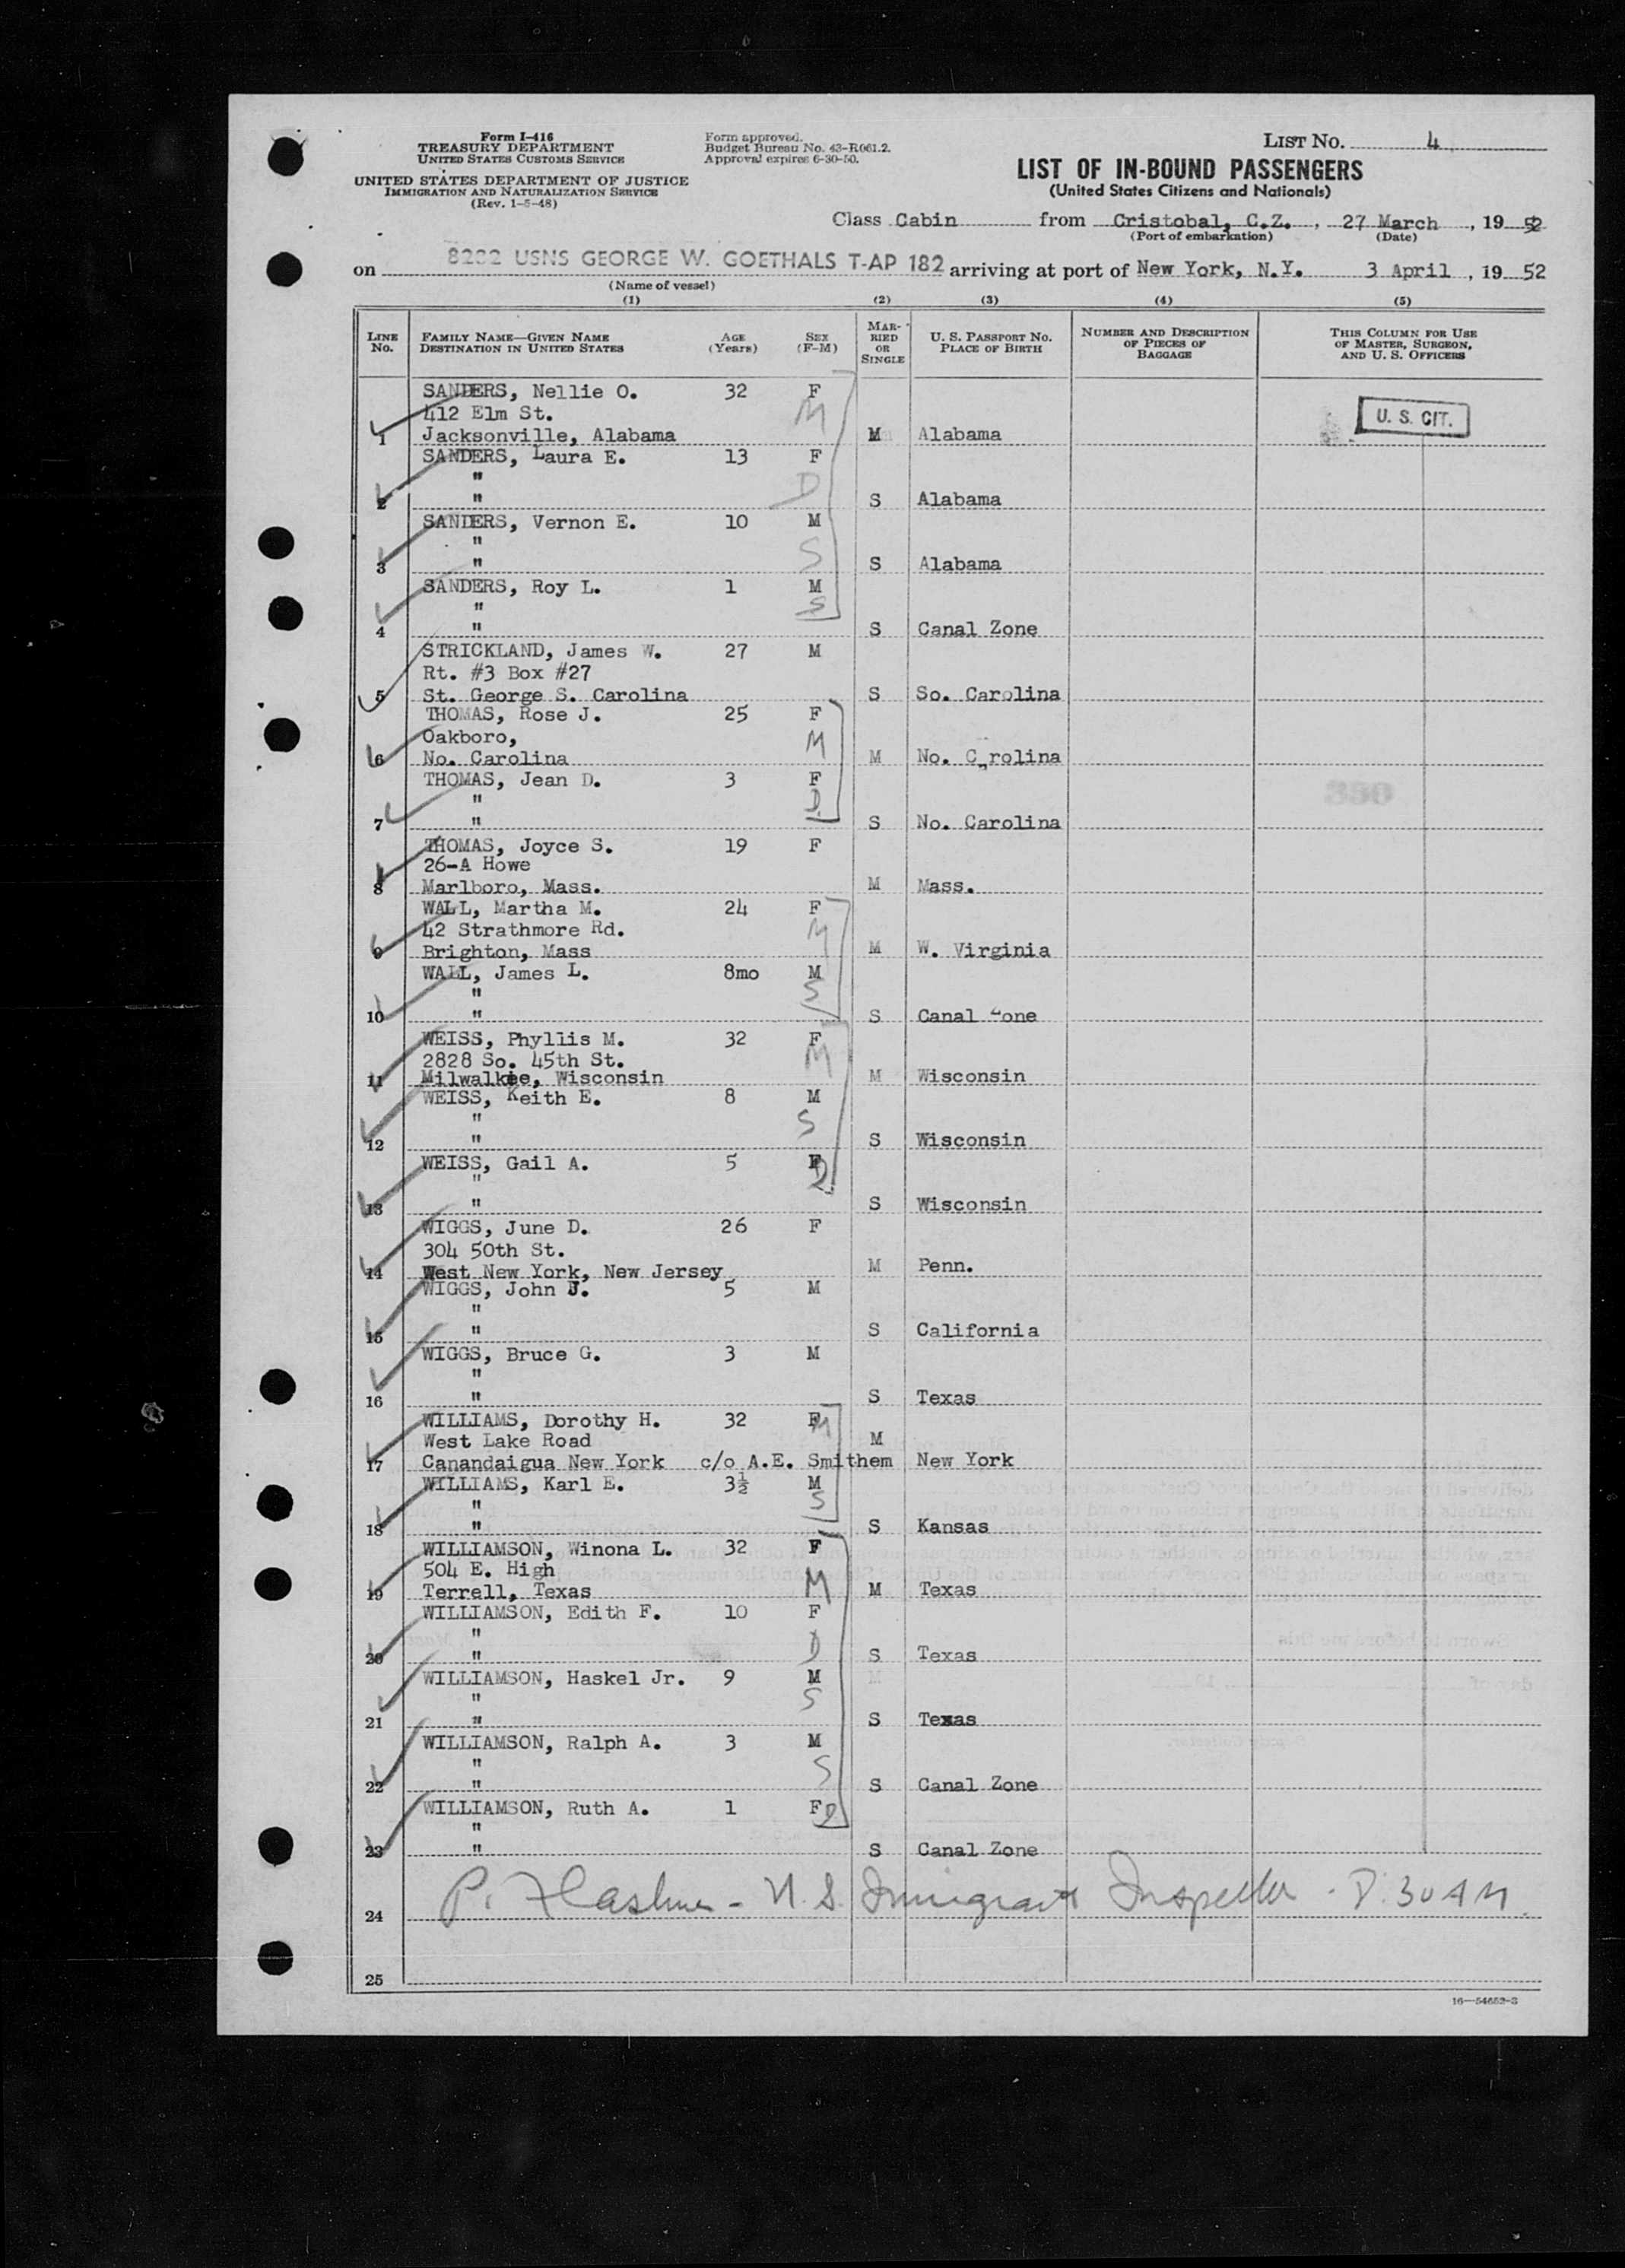 Form I-416
TREASURY DEPARTMENT
UNITED STATES CUSTOMS SERVICE
UNITED STATES DEPARTMENT OF JUSTICE
IMMIGRATION AND NATURALIZATION SERVICE
(Rev. 1-5-48)
Form approved.
Budget Bureau No. 43-R061.2.
Approval expires 6-30-50.
LIST NO. 4
LIST OF IN-BOUND PASSENGERS
(United States Citizens and Nationals)
Class Cabin from Cristobal, C.Z., 27 March, 1952
(Port of embarkation) (Date)
on 8202 USNS GEORGE W. GOETHALS T-AP 182 arriving at port of New York, N.Y. 3 April, 19 52
(Name of vessel)
(1) (2) (3) (4) (5)
LINE NO. FAMILY NAME—GIVEN NAME DESTINATION IN UNITED STATES AGE (Years) SEX (F-M) MARRIED OR SINGLE U. S. PASSPORT NO. PLACE OF BIRTH NUMBER AND DESCRIPTION OF PIECES OF BAGGAGE THIS COLUMN FOR USE OF MASTER, SURGEON, AND U. S. OFFICERS
SANDERS, Nellie O. 32 F
412 Elm St. M U. S. CIT.
1 Jacksonville, Alabama M Alabama
SANDERS, Laura E. 13 F
" D
2 " S Alabama
SANDERS, Vernon E. 10 M
" S
3 " S Alabama
SANDERS, Roy L. 1 M
" S
4 " S Canal Zone
STRICKLAND, James W. 27 M
Rt. #3 Box #27
5 St. George S. Carolina S So. Carolina
THOMAS, Rose J. 25 F
Oakboro, M
6 No. Carolina M No. C rolina
THOMAS, Jean D. 3 F
" D 350
7 " S No. Carolina
THOMAS, Joyce S. 19 F
26-A Howe
8 Marlboro, Mass. M Mass.
WALL, Martha M. 24 F
42 Strathmore Rd. M
9 Brighton, Mass M W. Virginia
WALL, James L. 8mo M
" S
10 " S Canal Zone
WEISS, Phyllis M. 32 F
2828 So. 45th St. M
11 Milwalkee, Wisconsin M Wisconsin
WEISS, Keith E. 8 M
" S
12 " S Wisconsin
WEISS, Gail A. 5 F D
"
13 " S Wisconsin
WIGGS, June D. 26 F
304 50th St.
14 West New York, New Jersey M Penn.
WIGGS, John J. 5 M
"
15 " S California
WIGGS, Bruce G. 3 M
"
16 " S Texas
WILLIAMS, Dorothy H. 32 F M
West Lake Road M
17 Canandaigua New York c/o A.E. Smithem New York
WILLIAMS, Karl E. 3½ M
" S
18 " S Kansas
WILLIAMSON, Winona L. 32 F
504 E. High M
19 Terrell, Texas M Texas
WILLIAMSON, Edith F. 10 F
" D
20 " S Texas
WILLIAMSON, Haskel Jr. 9 M
" S
21 " S Texas
WILLIAMSON, Ralph A. 3 M
" S
22 " S Canal Zone
WILLIAMSON, Ruth A. 1 F D
"
23 " S Canal Zone
P. - U. S. Immigrant Inspector
24
25
16—54652-3